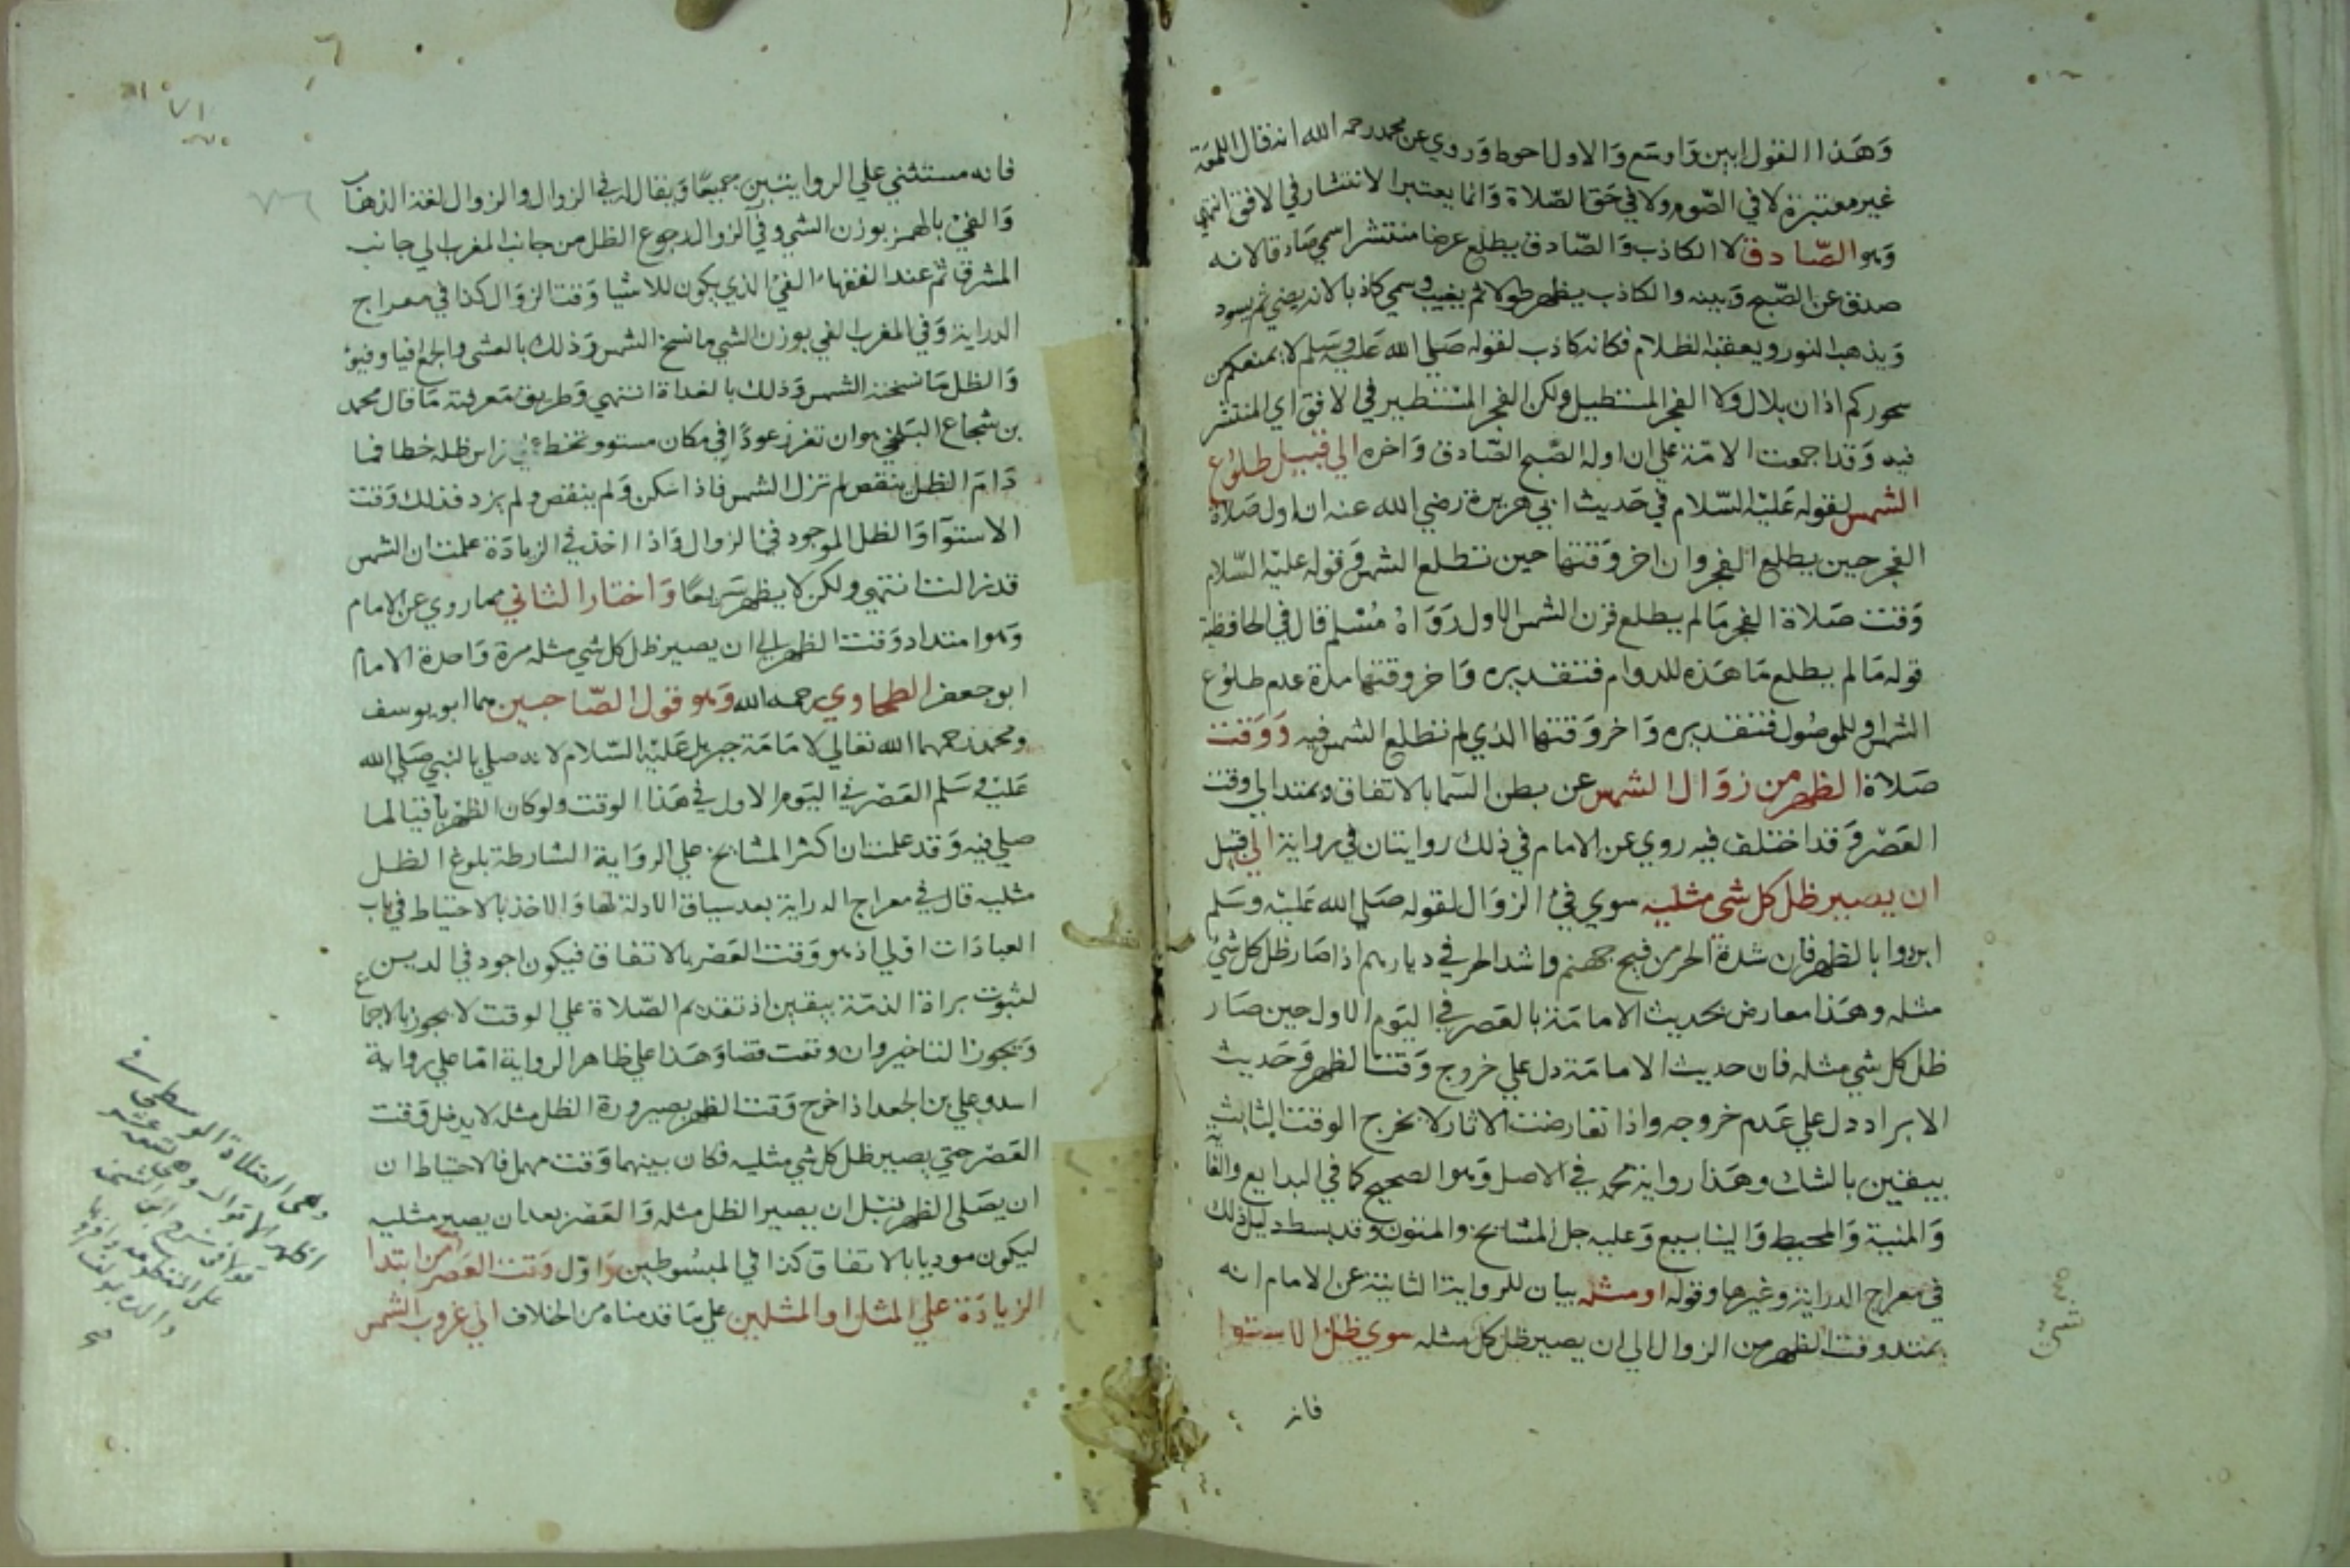 وهذا القول ابين واوسع والاول احوط وروي عن محمد رحمه الله انه قال اللمعة
غير معتبرة لا في الصوم ولا في حق الصلاة وانما يعتبر الانتشار في الافق انتهي
وهو الصادق لا الكاذب والصادق يطلع عرضا منتشرا سمي صادقا لانه
صدق عن الصبح وبينه والكاذب يظهر طولا ثم يغيب وسمي كاذبا لانه يضي ثم يسود
ويذهب النور ويعقبه الظلام فكانه كاذب لقوله صلي الله عليه وسلم لا يمنعكم من
سحوركم اذان بلال ولا الفجر المستطيل ولكن الفجر المستطير في الافق اي المنتشر
فيه وقد اجمعت الامة علي ان اوله الصبح الصادق واخره الي قبيل طلوع
الشمس لقوله عليه السلام في حديث ابي هريرة رضي الله عنه ان اول صلاة
الفجر حين يطلع الفجر وان اخر وقتها حين تطلع الشمس وقوله عليه السلام
وقت صلاة الفجر ما لم يطلع قرن الشمس الاول رواه مسلم قال في الحافظية
قوله ما لم يطلع ما هذه للدوام فتقديره واخر وقتها مدة عدم طلوع
الشمس او للموصول فتقديره واخر وقتها الذي لم تطلع الشمس فيه ووقت
صلاة الظهر من زوال الشمس عن بطن السما بالاتفاق ويمتد الي وقت
العصر وقد اختلف فيه روي عن الامام في ذلك روايتان في رواية الي قبل
ان يصير ظل كل شي مثليه سوي فئ الزوال لقوله صلي الله عليه وسلم
ابردوا بالظهر فان شدة الحر من فيح جهنم واشد الحر في ديارهم اذا صار ظل كل شي
مثله وهذا معارض بحديث الامامة بالعصر في اليوم الاول حين صار
ظل كل شي مثله فان حديث الامامة دل علي خروج وقت الظهر وحديث
الابراد دل علي عدم خروجه واذا تعارضت الاثار لا يخرج الوقت الثابت
بيقين بالشك وهذا رواية محمد في الاصل وهو الصحيح كما في البدايع والغاية
والمنية والمحيط والينابيع وعليه جل المشايخ والمتون وقد بسط دليل ذلك
في معراج الدراية وغيرها وقوله او مثله بيان للرواية الثانية عن الامام انه
يمتد وقت الظهر من الزوال الي ان يصير ظل كل مثله سوي ظل الاستوا
فانه
فانه مستثني علي الروايتين جميعا ويقال له في الزوال والزوال لغة الذهاب
والفئ بالهمز بوزن الشي وفي الزوال رجوع الظل من جانب المغرب الي جانب
المشرق ثم عند الفقهاء الفئ الذي يكون للاشيا وقت الزوال كذا في معراج
الدراية وفي المغرب الفي بوزن الشي ما نسخ الشمس وذلك بالعشي والجمع افيا وفيؤ
والظل ما نسخته الشمس وذلك بالغداة انتهي وطريق معرفته ما قال محمد
بن شجاع البلخي هو ان تغرز عودا في مكان مستو وتخط راس ظله خطا فما
دام الظل ينقص لم تزل الشمس فاذا سكن ولم ينقص ولم يزد فذلك وقت
الاستوآ والظل الموجود فئ الزوال واذا اخذ في الزيادة علمت ان الشمس
قد زالت انتهي ولكن لا يظهر سريعا واختار الثاني مما روي عن الامام
وهو امتداد وقت الظهر الي ان يصير ظل كل شي مثله مرة واحدة الامام
ابو جعفر الطحاوي رحمه الله وهو قول الصاحبين هما ابو يوسف
ومحمد رحمهما الله تعالي لامامة جبريل عليه السلام لانه صلي بالنبي صلي الله
عليه وسلم العصر في اليوم الاول في هذا الوقت ولو كان الظهر باقيا لما
صلي فيه وقد علمت ان اكثر المشايخ علي الرواية الشارطة بلوغ الظل
مثليه قال في معراج الدراية بعد سياق الادلة لها والاخذ بالاحتياط في باب
العبادات اولي اذ هو وقت العصر بالاتفاق فيكون اجود في الدين
لثبوت براة الذمة بيقين اذ تقديم الصلاة علي الوقت لا يجوز بالاجماع
ويجوز التاخير وان وقعت قضا وهذا علي ظاهر الرواية اما علي رواية
اسد وعلي بن الجعد اذا خرج وقت الظهر بصيرورة الظل مثله لا يدخل وقت
العصر حتي يصير ظل كل شي مثليه فكان بينهما وقت مهمل فالاحتياط ان
ان يصلي الظهر قبل ان يصير الظل مثله والعصر بعد ان يصير مثليه
ليكون موديا بالاتفاق كذا في المبسوطين واول وقت العصر من ابتدا
الزيادة علي المثل او المثلين علي ما قدمناه من الخلاف الي غروب الشمس
وهي الصلاة الوسطي في
اظهر الاقوال